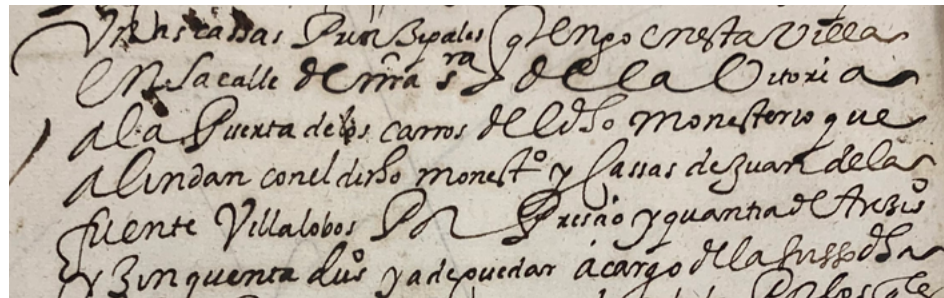 Unas cassas Prinzipales q tengo en esta Villa
En la calle de nra sra de la Vitoria
a la Puerta de los carros del dho monesterio que
alindan con el dicho monestº y Cassas de Juan de la
fuente Villalobos Pr Presçio y quantia de trezºs
y zinquenta dus y a de quedar a cargo de la susso dha